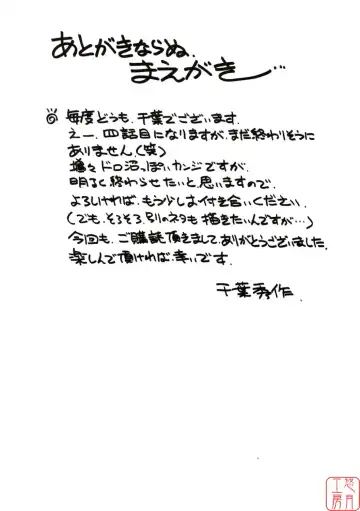 あとがきならぬ、
まえがき…
◎ 毎度どうも、千葉でございます。
えー、四話目になりますが、まだ終わりそうに
ありません。(笑)
増々ドロ沼っぽいカンジですが、
明るく終わらせたいと思いますので、
よろしければ、もう少しお付き合いください。
(でも、そろそろ別のネタも描きたいんですが…)
今回も、ご購読頂きまして、ありがとうございました。
楽しんで頂ければ、幸いです。
千葉秀作
悠月
工房